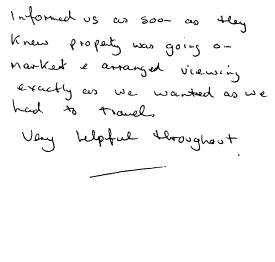 Informed us as soon as they
knew property was going on
market & arranged viewing
exactly as we wanted as we
had to travel.
Very helpful throughout.